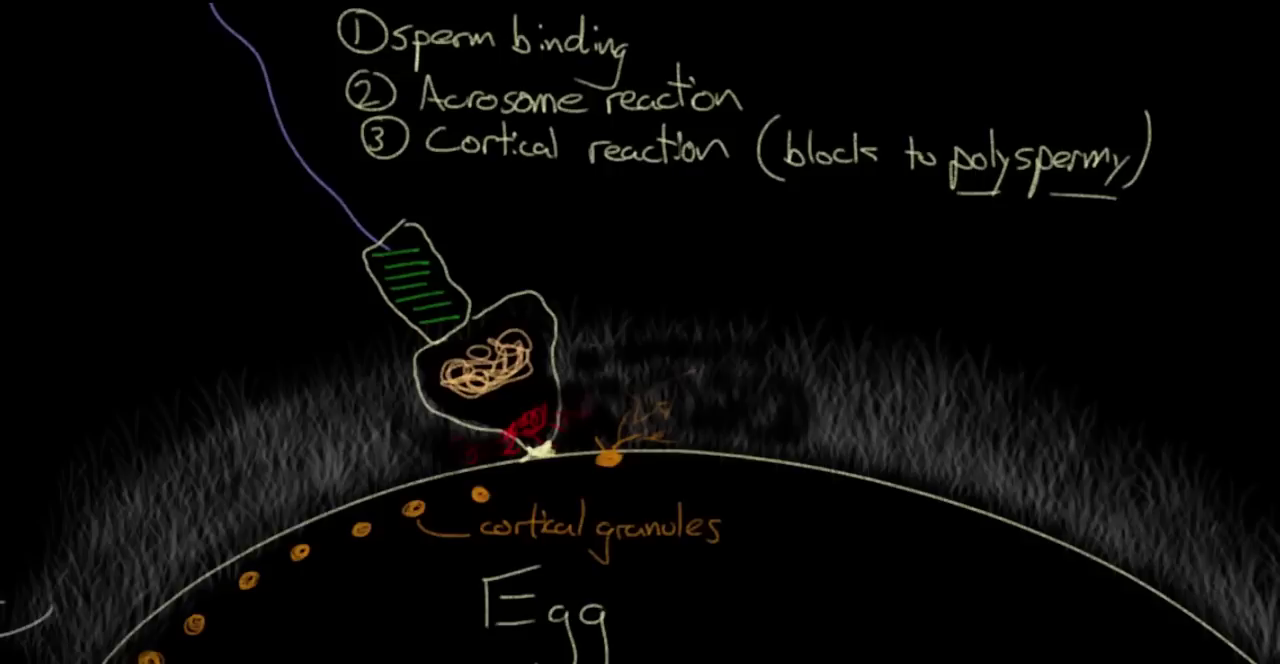 ① sperm binding
② Acrosome reaction
③ Cortical reaction (block to polyspermy)
cortical granules
Egg